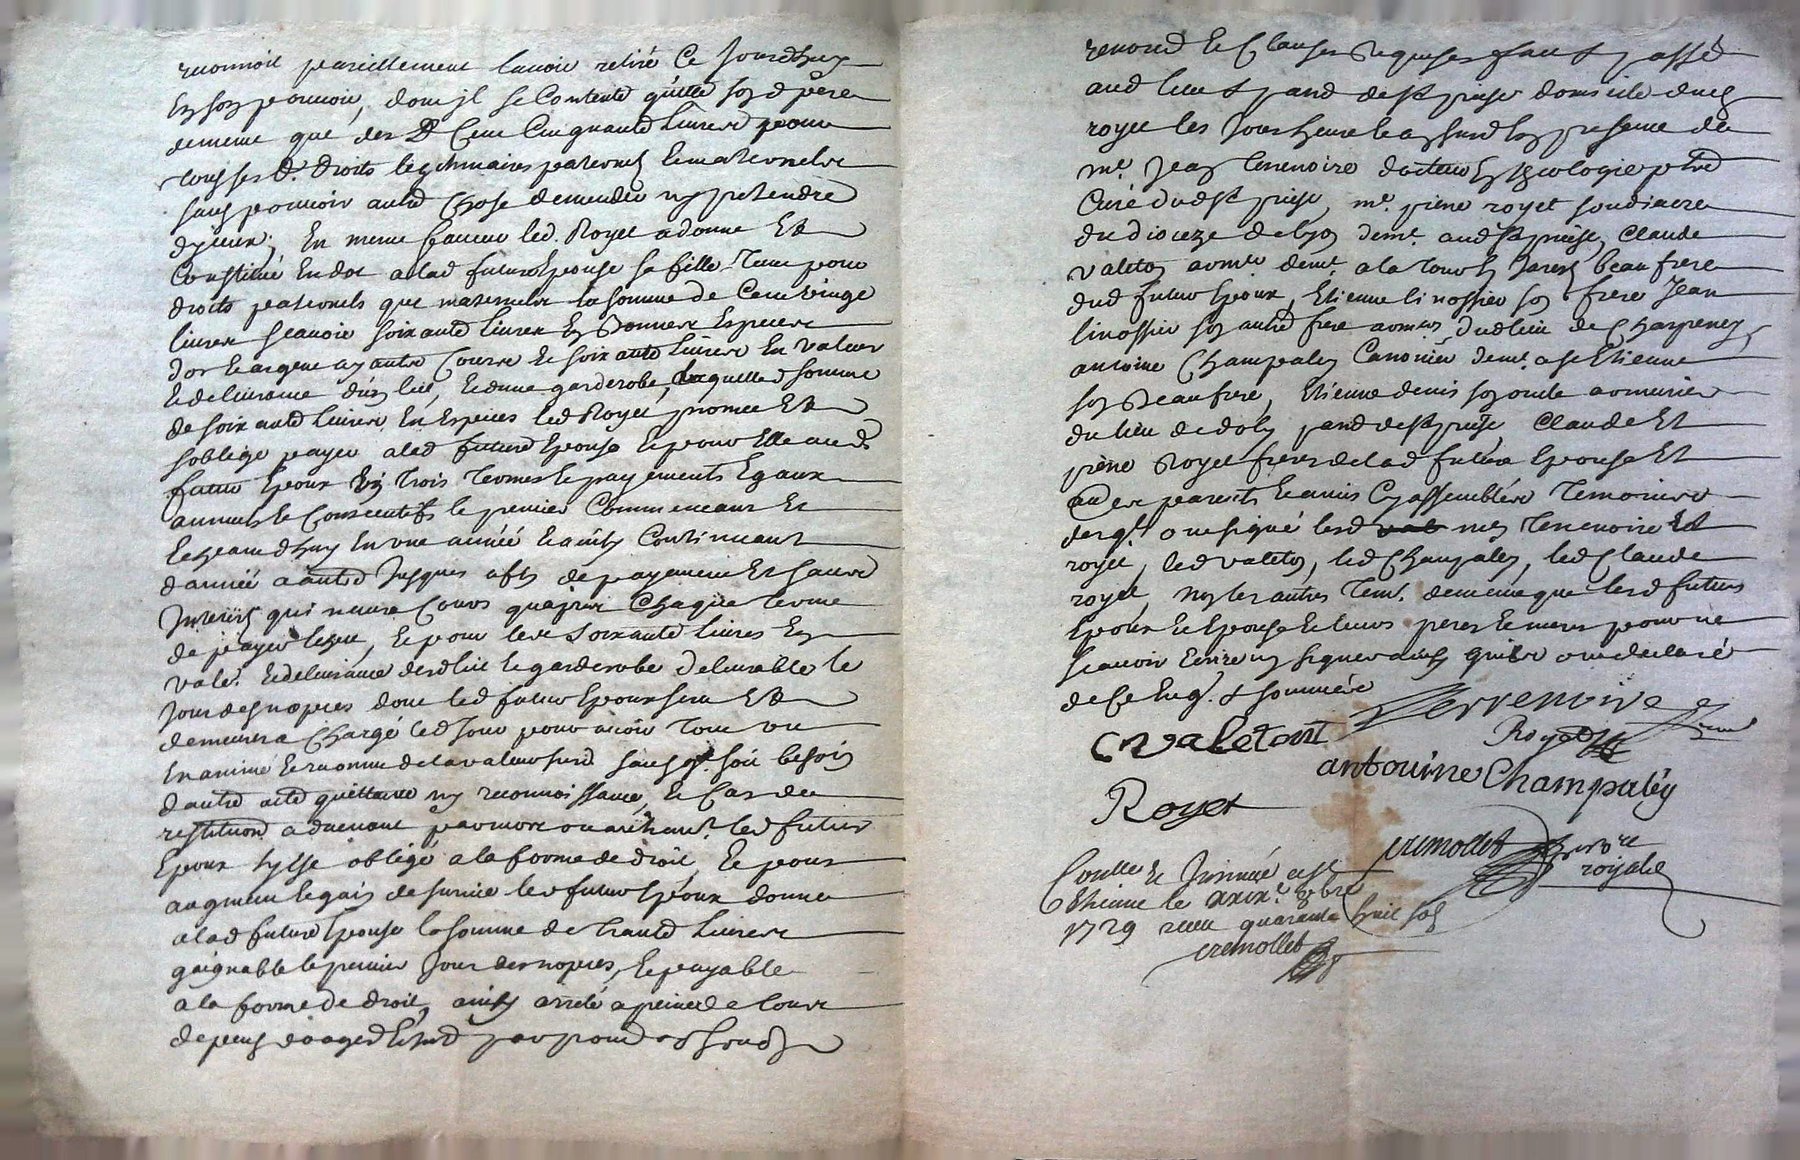 reconnoit pareillement lavoir retiré Ce Jourdhuy
En son pouvoir, dont jl se Contente quitte sond père
dememe que des d Cent Cinquante livres pour
tous sesd. droits legitimaires paternels Ematernels
sans pouvoir autre Chose demender ny pretendre
dyceux; En meme faveur led. Royet a donné Et
Constitué En dot alad future Epouse sa fille Tant pour
droits paternels que maternels la somme de Cent vingt
livres scavoir soixante livres En bonnes Especes
dor Et argent ayants Cours Et soixante livres En valeur
Et delivrance d'un lit, Et dune garderobe, laquelle d somme
de soixante livres En Especes led Royet promet Et
soblige payer alad future Epouse Et pour Elle aud
futur Epoux En Trois Termes Et payements Egaux
annuels Et Consecutifs le premier Commenceant Et
Echeant dhuy En une année Et ainsy Continuant
dannée a autre Jusques afin de payement Et sauve
Interets qui nauront Cours quapres Chaque terme
de payer Echeu, Et pour les soixante livres En
vale. Et delivrance desd lit Et garderobe delivrable le
Jour des nopces dont led futur Epoux sera Et
demeurera Chargé led Jour pour avoir Tout vu
Examiné Et reconnu dela valeur susd sans ql. soit besoin
dautre acte quittance ny reconnoissance, Et Cas de
restitution advenant par mort ou autrement. led futur
Epoux sy Est obligé a la forme de droit, Et pour
augment Et gain de survie led futur Epoux donne
alad future Epouse la somme de Trante livres
gaignable le premier Jour des nopces, Et payable
a la forme de droit, ainsy arreté a peine de tous
depens domages Et susd par promes obligons
renond Et Clauses Requises fait Et passé
aud lieu Et parr de St priest domicile dud
royet les Jour heure Et an susd En presence de
mr. Jean Terrenoire docteur En Theologie ptre
Curé dud St priest, mr. pierre royet soudiacre
du dioceze de lyon demt. aud St priest, Claude
valeton armur demt. a la Tour En Jarest beaufrere
dud futur Epoux, Etienne linossier son frere Jean
linossier son autre frere armurs dud lieu de Charpeney
antoine Champaley Canonier demt. a St Etienne
son Beaufrere, Etienne denis son oncle armurier
du lieu de doly parr de St priest, Claude Et
pierre Royet freres delad future Epouse Et
autres parents Et amis Cy assemblés Temoins
desqls. ont signé lesd mes Terrenoire Et
royet, led valeton, led Champaley, led Claude
royet, ny les autres Tem. dememe que lesd futurs
Epoux Et Epouse Et leurs peres Et meres pour ne
scavoir Ecrire ny signer ainsy quils ont declaré
de Ce Enqs. Et sommés
C valetont
Terrenoire
Royet
antouine Champaley
Royet
cremollet nore
royal
Contlle Et Insinué a St
Ethienne le xxix.e 8bre
1729 receu quarante huit sols
cremollet